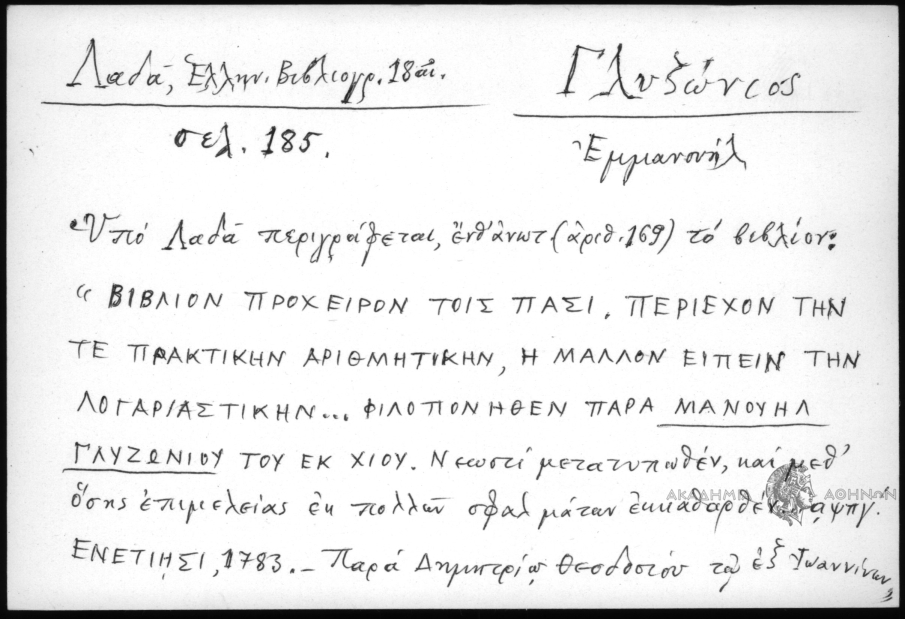 Λαδᾶ, Ἑλλην. Βιβλιογρ. 18 αἰ.
σελ. 185.
Γλυζώνιος
Ἐμμανουήλ
Ὑπό Λαδᾶ περιγράφεται, ἔνθ' ἀνωτ (ἀριθ. 169) τό βιβλίον:
“ ΒΙΒΛΙΟΝ ΠΡΟΧΕΙΡΟΝ ΤΟΙΣ ΠΑΣΙ, ΠΕΡΙΕΧΟΝ ΤΗΝ
ΤΕ ΠΡΑΚΤΙΚΗΝ ΑΡΙΘΜΗΤΙΚΗΝ, Η ΜΑΛΛΟΝ ΕΙΠΕΙΝ ΤΗΝ
ΛΟΓΑΡΙΑΣΤΙΚΗΝ... ΦΙΛΟΠΟΝΗΘΕΝ ΠΑΡΑ ΜΑΝΟΥΗΛ
ΓΛΥΖΩΝΙΟΥ ΤΟΥ ΕΚ ΧΙΟΥ. Νεωστί μετατυπωθέν, καί μεθ'
ὅσης ἐπιμελείας ἐκ πολλῶν σφαλμάτων ἐκκαθαρθέν. αψπγ'.
ΑΚΑΔΗΜΙΑ ΑΘΗΝΩΝ
ΕΝΕΤΙΗΣΙ, 1783. – Παρά Δημητρίῳ Θεοδοσίου τοῦ ἐξ Ἰωαννίνων